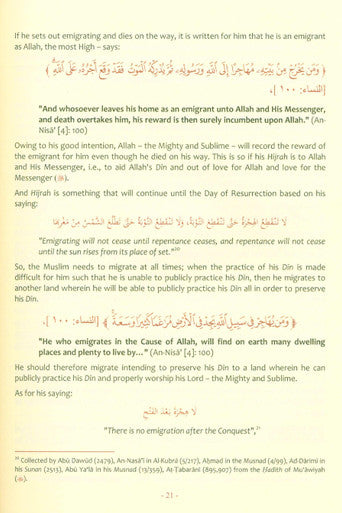 If he sets out emigrating and dies on the way, it is written for him that he is an emigrant
as Allah, the most High – says:
﴿ وَمَن يَخْرُجْ مِنۢ بَيْتِهِۦ مُهَاجِرًا إِلَى ٱللَّهِ وَرَسُولِهِۦ ثُمَّ يُدْرِكْهُ ٱلْمَوْتُ فَقَدْ وَقَعَ أَجْرُهُۥ عَلَى ٱللَّهِ ﴾
[النساء: ١٠٠],
"And whosoever leaves his home as an emigrant unto Allah and His Messenger,
and death overtakes him, his reward is then surely incumbent upon Allah." (An-
Nisā' [4]: 100)
Owing to his good intention, Allah – the Mighty and Sublime – will record the reward of
the emigrant for him even though he died on his way. This is so if his Hijrah is to Allah
and His Messenger, i.e., to aid Allah's Dīn and out of love for Allah and love for the
Messenger (ﷺ).
And Hijrah is something that will continue until the Day of Resurrection based on his
saying:
لَا تَنْقَطِعُ الْهِجْرَةُ حَتَّى تَنْقَطِعَ التَّوْبَةُ، وَلَا تَنْقَطِعُ التَّوْبَةُ حَتَّى تَطْلُعَ الشَّمْسُ مِنْ مَغْرِبِهَا
"Emigrating will not cease until repentance ceases, and repentance will not cease
until the sun rises from its place of set."20
So, the Muslim needs to migrate at all times; when the practice of his Dīn is made
difficult for him such that he is unable to publicly practice his Dīn, then he migrates to
another land wherein he will be able to publicly practice his Dīn all in order to preserve
his Dīn.
﴿ وَمَن يُهَاجِرْ فِي سَبِيلِ ٱللَّهِ يَجِدْ فِي ٱلْأَرْضِ مُرَٰغَمًا كَثِيرًا وَسَعَةً ﴾ [النساء: ١٠٠],
"He who emigrates in the Cause of Allah, will find on earth many dwelling
places and plenty to live by..." (An-Nisā' [4]: 100)
He should therefore migrate intending to preserve his Dīn to a land wherein he can
publicly practice his Dīn and properly worship his Lord – the Mighty and Sublime.
As for his saying:
لَا هِجْرَةَ بَعْدَ الْفَتْحِ
"There is no emigration after the Conquest",21
20 Collected by Abū Dawūd (2479), An-Nasā'ī in Al-Kubrā (5/217), Aḥmad in the Musnad (4/99), Ad-Dārimī in
his Sunan (2513), Abū Ya'lā in his Musnad (13/359), Aṭ-Ṭabarānī (895,907) from the Ḥadīth of Mu'āwiyah
- 21 -